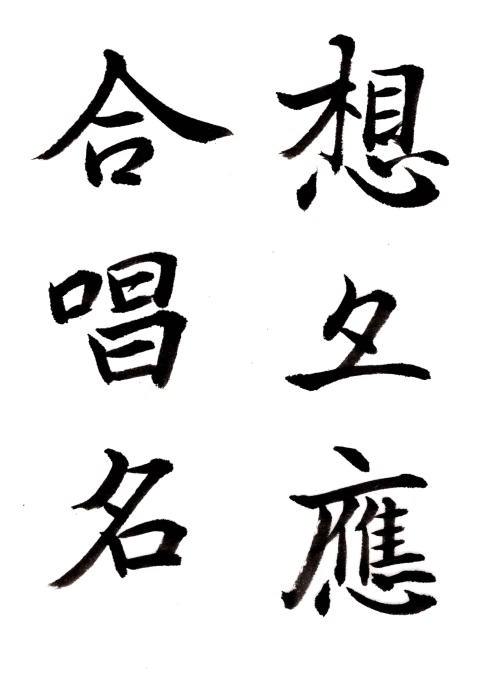 想互應
合唱名